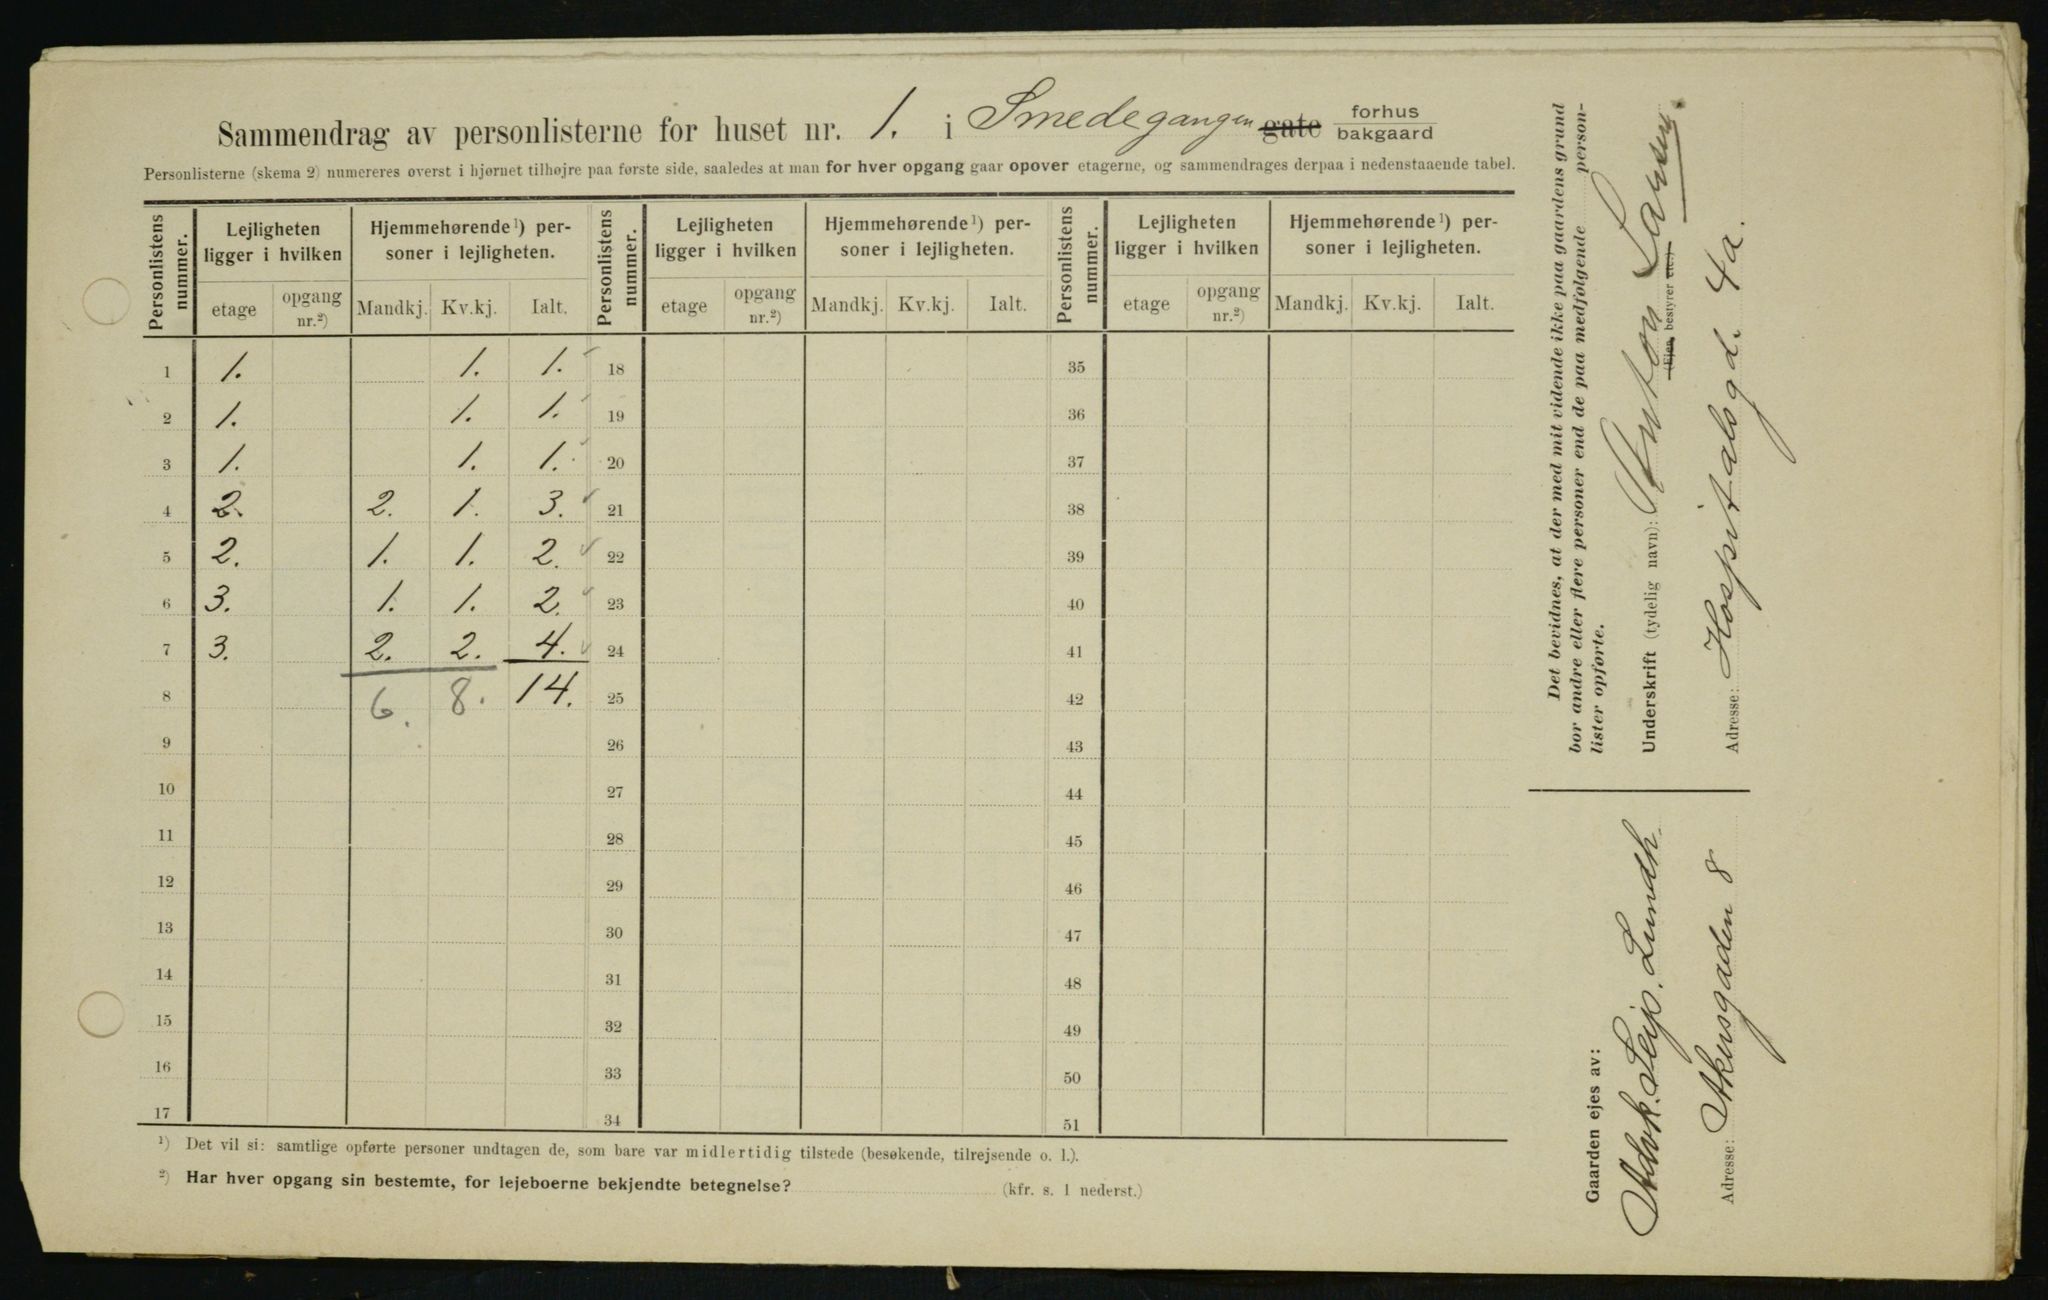 Sammendrag av personlisterne for huset nr. 1. i Smedegangen gate forhus bakgaard
Personlisterne (skema 2) numereres øverst i hjørnet tilhøjre paa første side, saaledes at man for hver opgang gaar opover etagerne, og sammendrages derpaa i nedenstaaende tabel.
Personlistens nummer. Lejligheten ligger i hvilken Hjemmehørende ¹) personer i lejligheten. Personlistens nummer. Lejligheten ligger i hvilken Hjemmehørende ¹) personer i lejligheten. Personlistens nummer. Lejligheten ligger i hvilken Hjemmehørende ¹) personer i lejligheten.
etage opgang nr.²) Mandkj. Kv.kj. Ialt. etage opgang nr.²) Mandkj. Kv.kj. Ialt. etage opgang nr.²) Mandkj. Kv.kj. Ialt.
1 1. 1. 1. 18 35
2 1. 1. 1. 19 36
3 1. 1. 1. 20 37
4 2. 2. 1. 3. 21 38
5 2. 1. 1. 2. 22 39
6 3. 1. 1. 2. 23 40
7 3. 2. 2. 4. 24 41
8 6. 8. 14. 25 42
9 26 43
10 27 44
11 28 45
12 29 46
13 30 47
14 31 48
15 32 49
16 33 50
17 34 51
¹) Det vil si: samtlige opførte personer undtagen de, som bare var midlertidig tilstede (besøkende, tilrejsende o. l.).
²) Har hver opgang sin bestemte, for lejeboerne bekjendte betegnelse? (kfr. s. 1 nederst.)
Det bevidnes, at der med mit vidende ikke paa gaardens grund
bor andre eller flere personer end de paa medfølgende person-
lister opførte.
Underskrift (tydelig navn): Anton Larsen.
(Ejer, bestyrer etc.)
Adresse: Hospitalsgd. 4a.
Gaarden ejes av:
Advk. Sejp. Lundh.
Adresse: Akersgaden 8